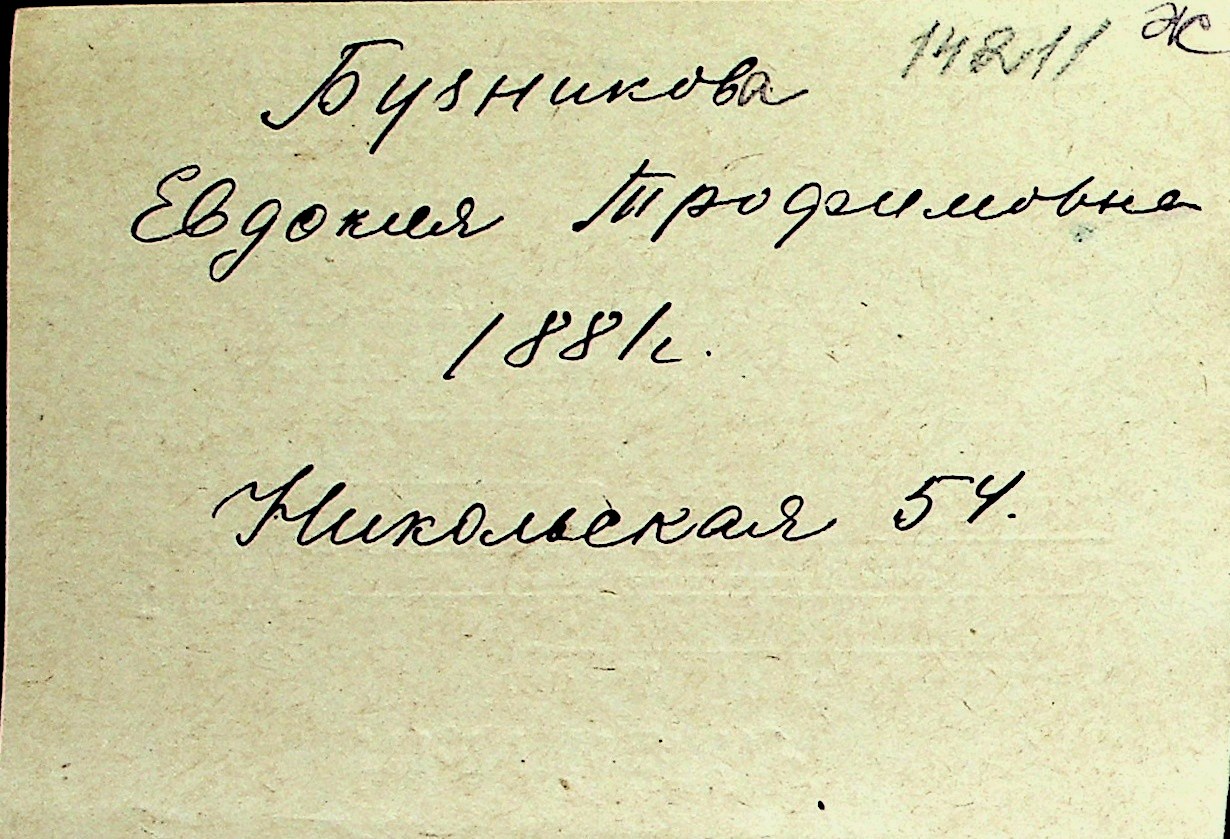 14211 Ж
Бузникова
Евдокия Трофимовна
1881г.
Никольская 54.